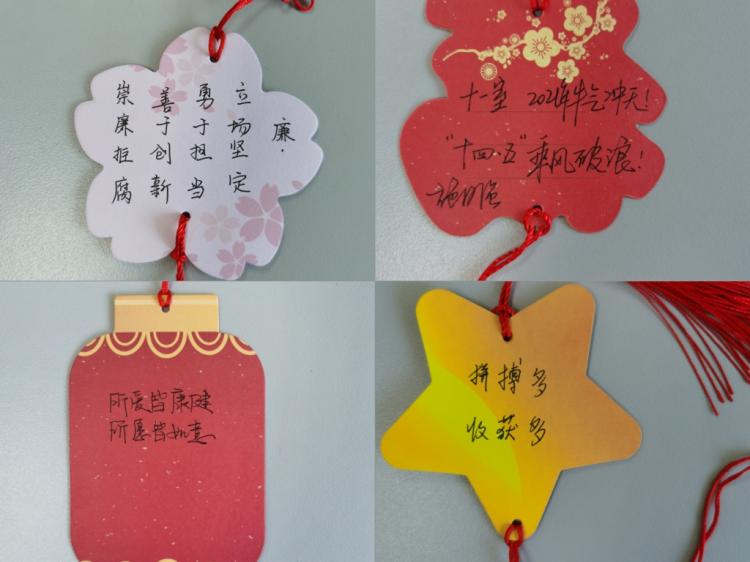 廉·
立场坚定
勇于担当
善于创新
崇廉拒腐
十一室 2021年牛气冲天!
"十四·五"乘风破浪!
所爱皆康健
所愿皆如意
拼搏多
收获多